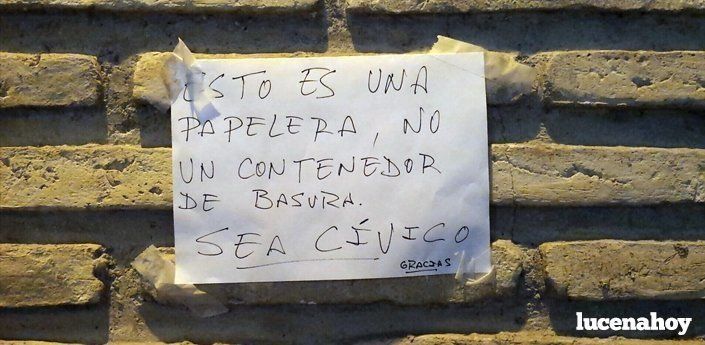 ESTO ES UNA
PAPELERA, NO
UN CONTENEDOR
DE BASURA.
SEA CÍVICO
GRACIAS
lucenahoy